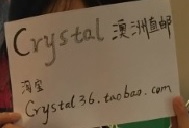 Crystal 澳洲直邮
淘宝
Crystal36.taobao.com